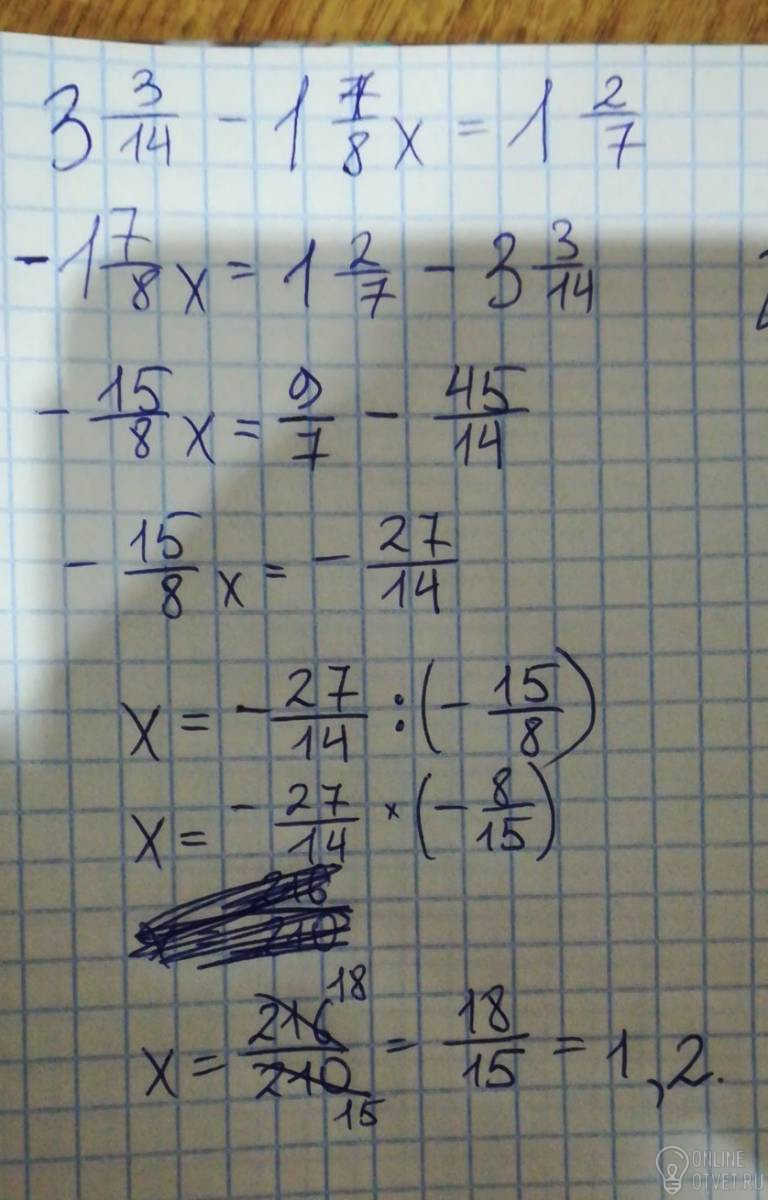 3 3/14 - 1 7/8 x = 1 2/7
- 1 7/8 x = 1 2/7 - 3 3/14
- 15/8 x = 9/7 - 45/14
- 15/8 x = - 27/14
x = - 27/14 : (- 15/8)
x = - 27/14 × (- 8/15)
x = 216/210 18 15 = 18/15 = 1,2.
ONLINE
OTVET.RU